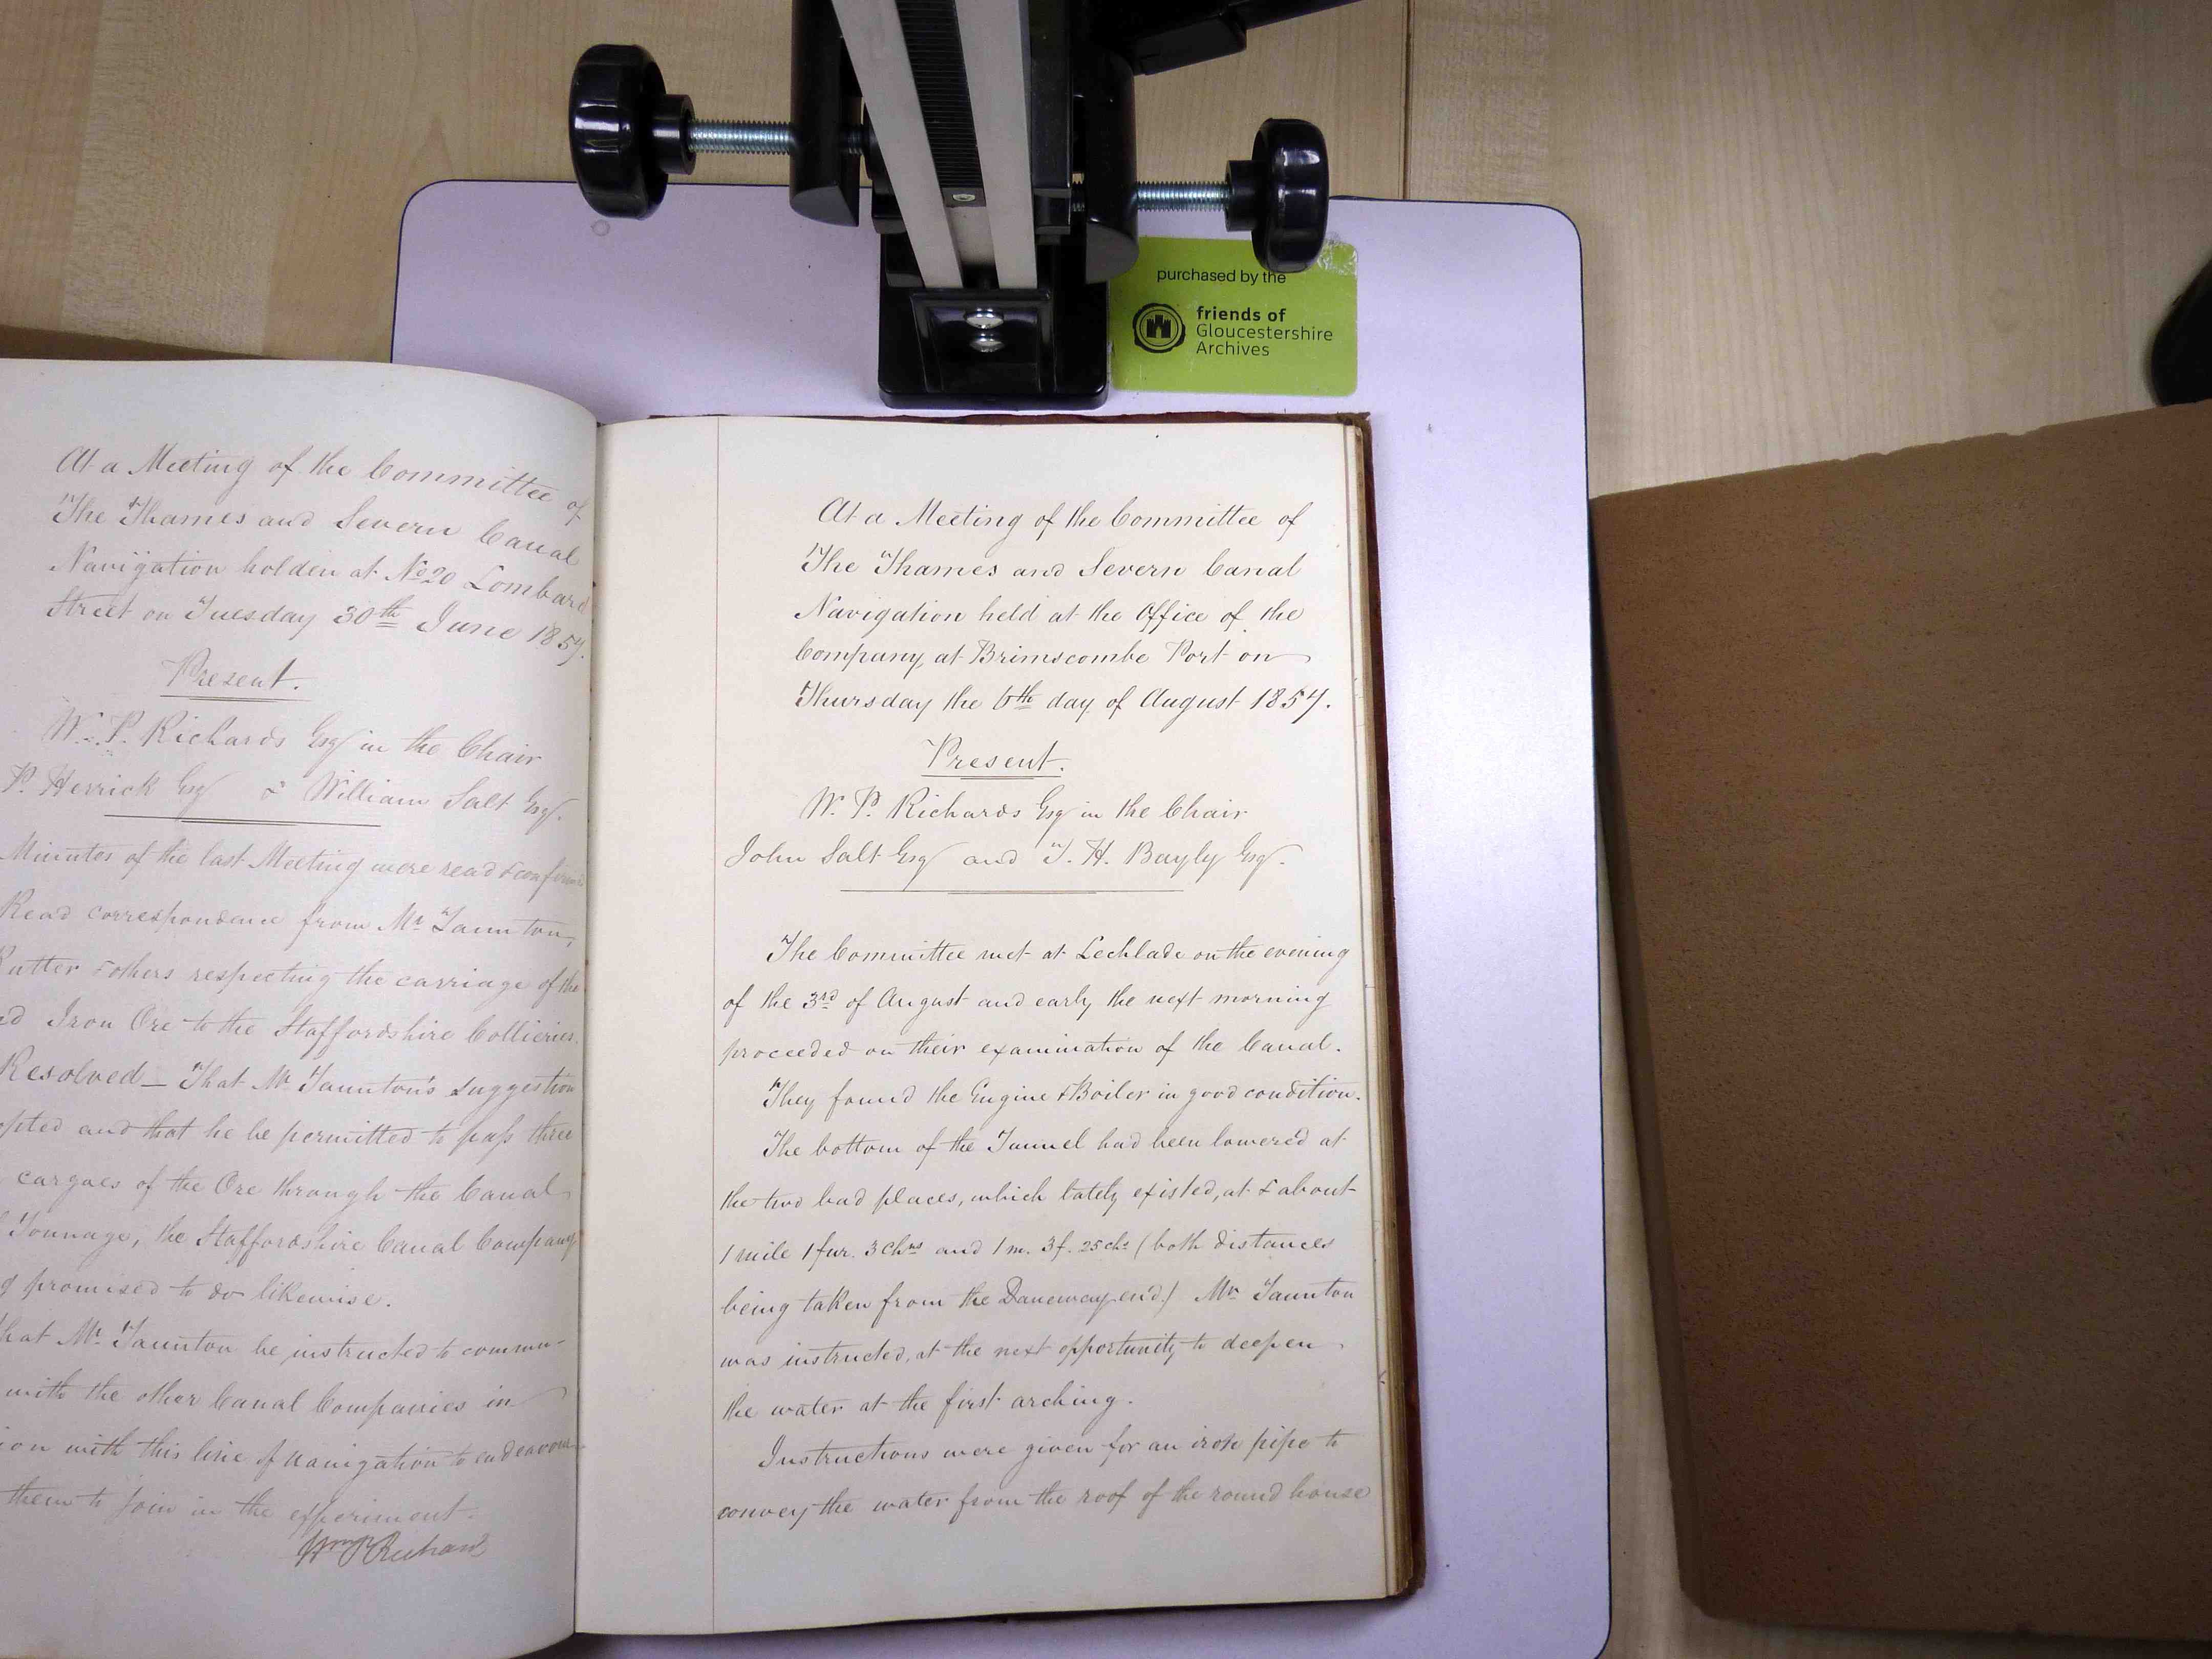 purchased by the
friends of
Gloucestershire
Archives
At a Meeting of the Committee of
The Thames and Severn Canal
Navigation holden at No 20 Lombard
Street on Tuesday 30th June 1857.
Present.
W. P. Richards Esq in the Chair
P. Herrick Esq & William Salt Esq.
Minutes of the last Meeting were read & confirm
Read correspondence from Mr Taunton,
Rutter & others respecting the carriage of the
Iron Ore to the Staffordshire Collieries.
Resolved — That Mr Taunton's suggestion
opted and that he be permitted to pass three
cargoes of the Ore through the Canal
Tonnage, the Staffordshire Canal Company
g promised to do likewise.
hat Mr Taunton be instructed to commu-
with the other Canal Companies in
ion with this line of navigation to endeavour
them to join in the experiment.
Wm P Richards
At a Meeting of the Committee of
The Thames and Severn Canal
Navigation held at the Office of the
Company at Brimscombe Port on
Thursday the 6th day of August 1857.
Present.
W. P. Richards Esq in the Chair
John Salt Esq and T. H. Bayly Esq.
The Committee met at Lechlade on the evening
of the 3rd of August and early the next morning
proceeded on their examination of the Canal.
They found the Engine & Boiler in good condition.
The bottom of the Tunnel had been lowered at
the two bad places, which lately existed, at & about
1 mile 1 fur. 3 Chns and 1 m. 3 f. 25 chs (both distances
being taken from the Daneway end) Mr Taunton
was instructed, at the next opportunity to deepen
the water at the first arching.
Instructions were given for an iron pipe to
convey the water from the roof of the round house